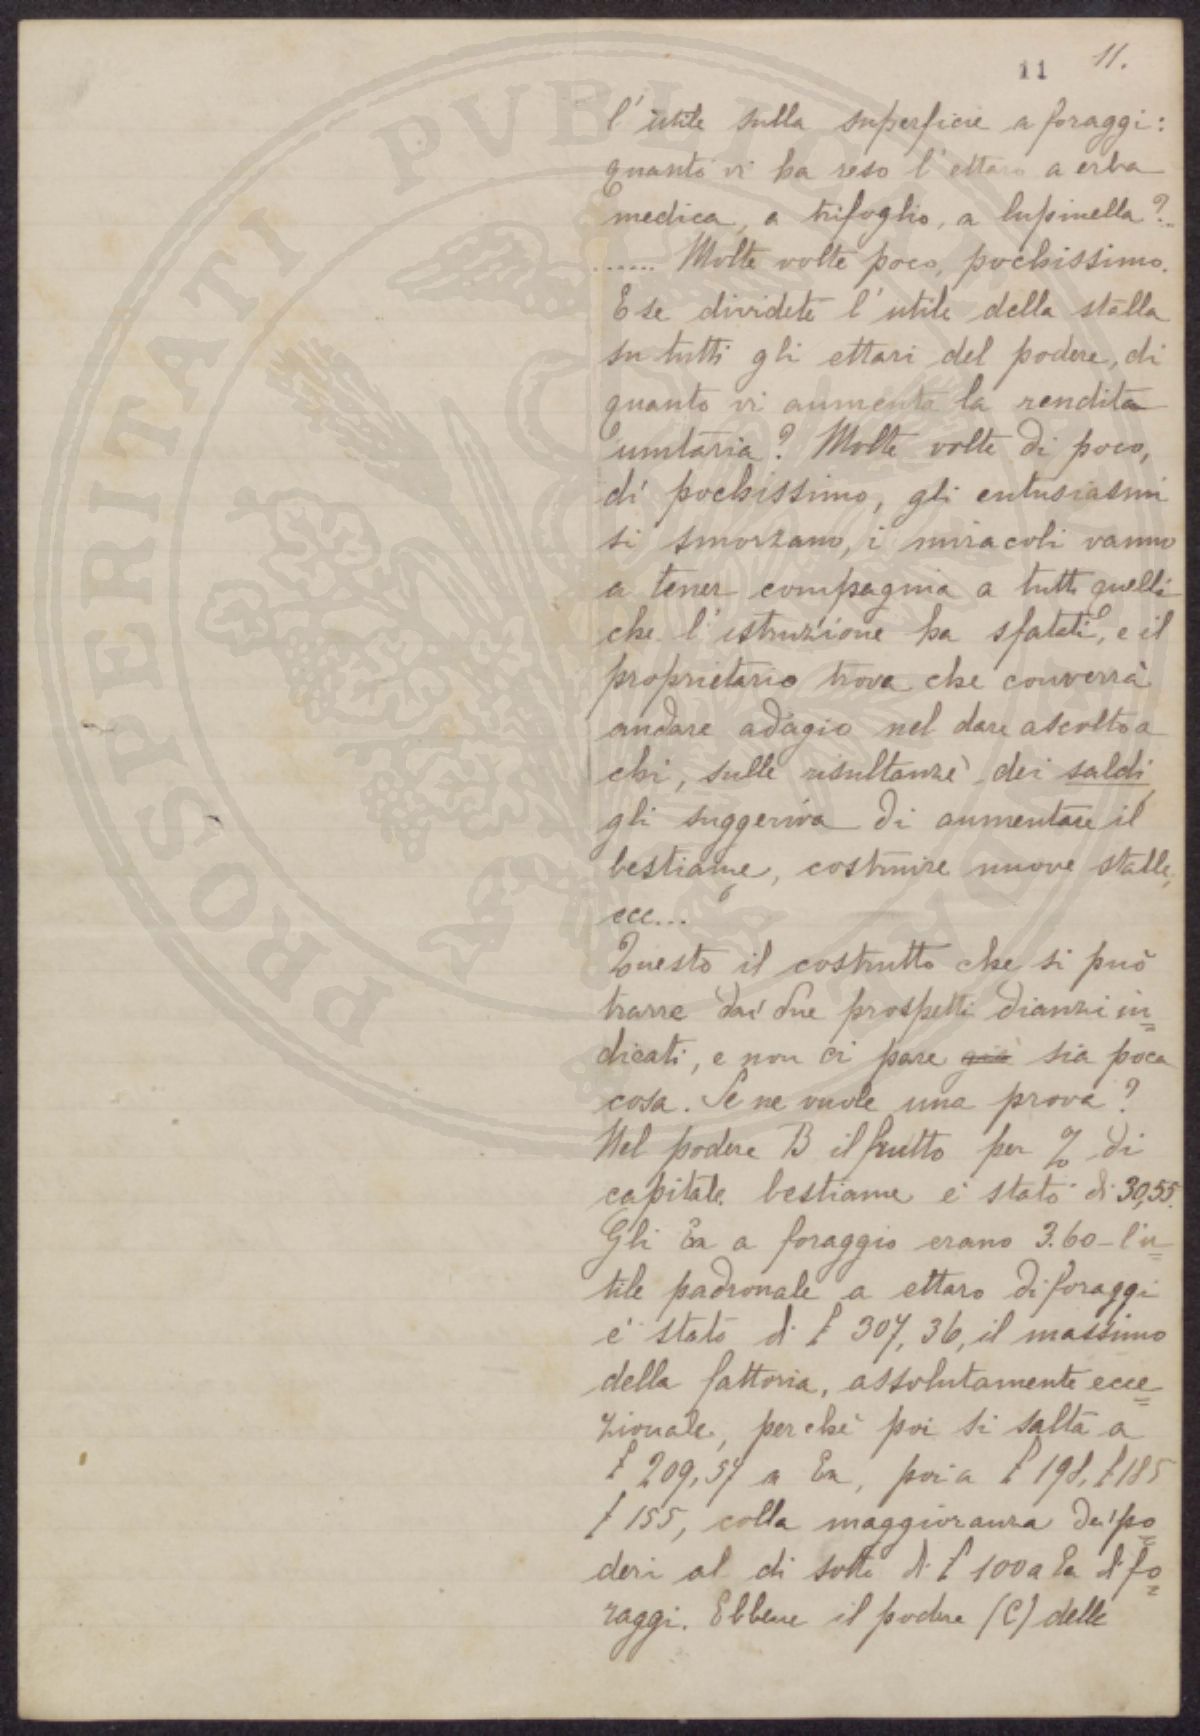 11 11.
l'utile sulla superficie a foraggi:
quanto vi ha reso l'ettaro a erba
medica, a trifoglio, a lupinella?..
...... Molte volte poco, pochissimo.
E se dividete l'utile della stalla
su tutti gli ettari del podere, di
quanto vi aumenta la rendita
unitaria? Molte volte di poco,
di pochissimo, gli entusiasmi
si smorzano, i miracoli vanno
a tener compagnia a tutti quelli
che l'istruzione ha sfatati, e il
proprietario trova che converrà
andare adagio nel dare ascolto a
chi, sulle risultanze dei saldi,
gli suggeriva di aumentare il
bestiame, costruire nuove stalle,
ecc...
Questo il costrutto che si può
trarre dai due prospetti dianzi in=
dicati, e non ci pare già sia poca
cosa. Se ne vuole una prova?
Nel podere B il frutto per % di
capitale bestiame è stato di 30,55.
Gli Ea a foraggio erano 3.60 - l'u=
tile padronale a ettaro di foraggi
è stato di £ 307,36, il massimo
della fattoria, assolutamente ecce=
zionale, perchè poi si salta a
£ 209,57 a Ea, poi a £ 198, £ 185
£ 155, colla maggioranza dei po=
deri al di sotto di £ 100 a Ea di fo=
raggi. Ebbene il podere (C) delle
PROSPERITATI PVBLICAE